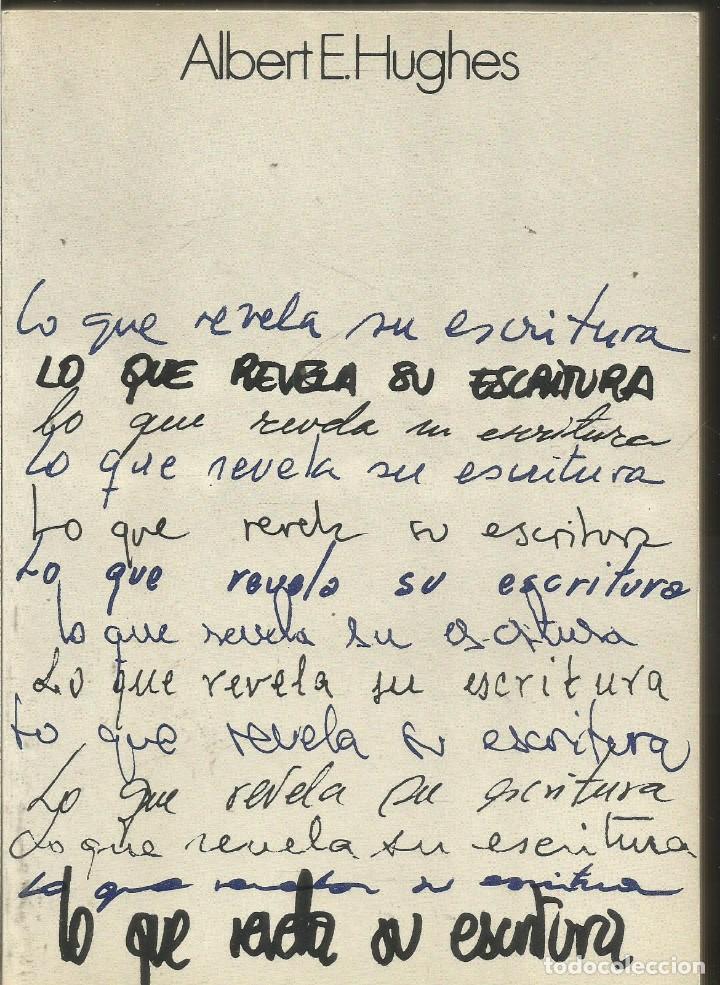 Albert E. Hughes
lo que revela su escritura
LO QUE REVELA SU ESCRITURA
lo que revela su escritura
lo que revela su escritura
Lo que revela su escritura
Lo que revela su escritura
lo que revela su escritura
Lo que revela su escritura
Lo que revela su escritura
Lo que revela su escritura
Lo que revela su escritura
lo que revela su escritura
lo que revela su escritura
todocoleccion